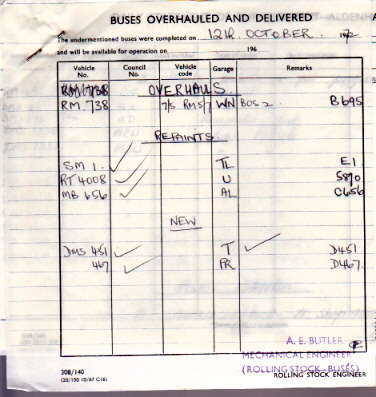 BUSES OVERHAULED AND DELIVERED
The undermentioned buses were completed on 12th OCTOBER. 1972
and will be available for operation on 196
Vehicle No. Council No. Vehicle code Garage Remarks
OVERHAULS.
RM 738 7/5 RM5/7 WN BOS 2 B695
REPAINTS.
SM 1. ✓ TL E1
RT 4008 ✓ U S870
MB 656 ✓ AL C656
NEW
DMS 451 ✓ T ✓ D451
467 ✓ PR D467
A. E. BUTLER
MECHANICAL ENGINEER
(ROLLING STOCK - BUSES)
ROLLING STOCK ENGINEER
308/140
(20/150 10/67 C16)